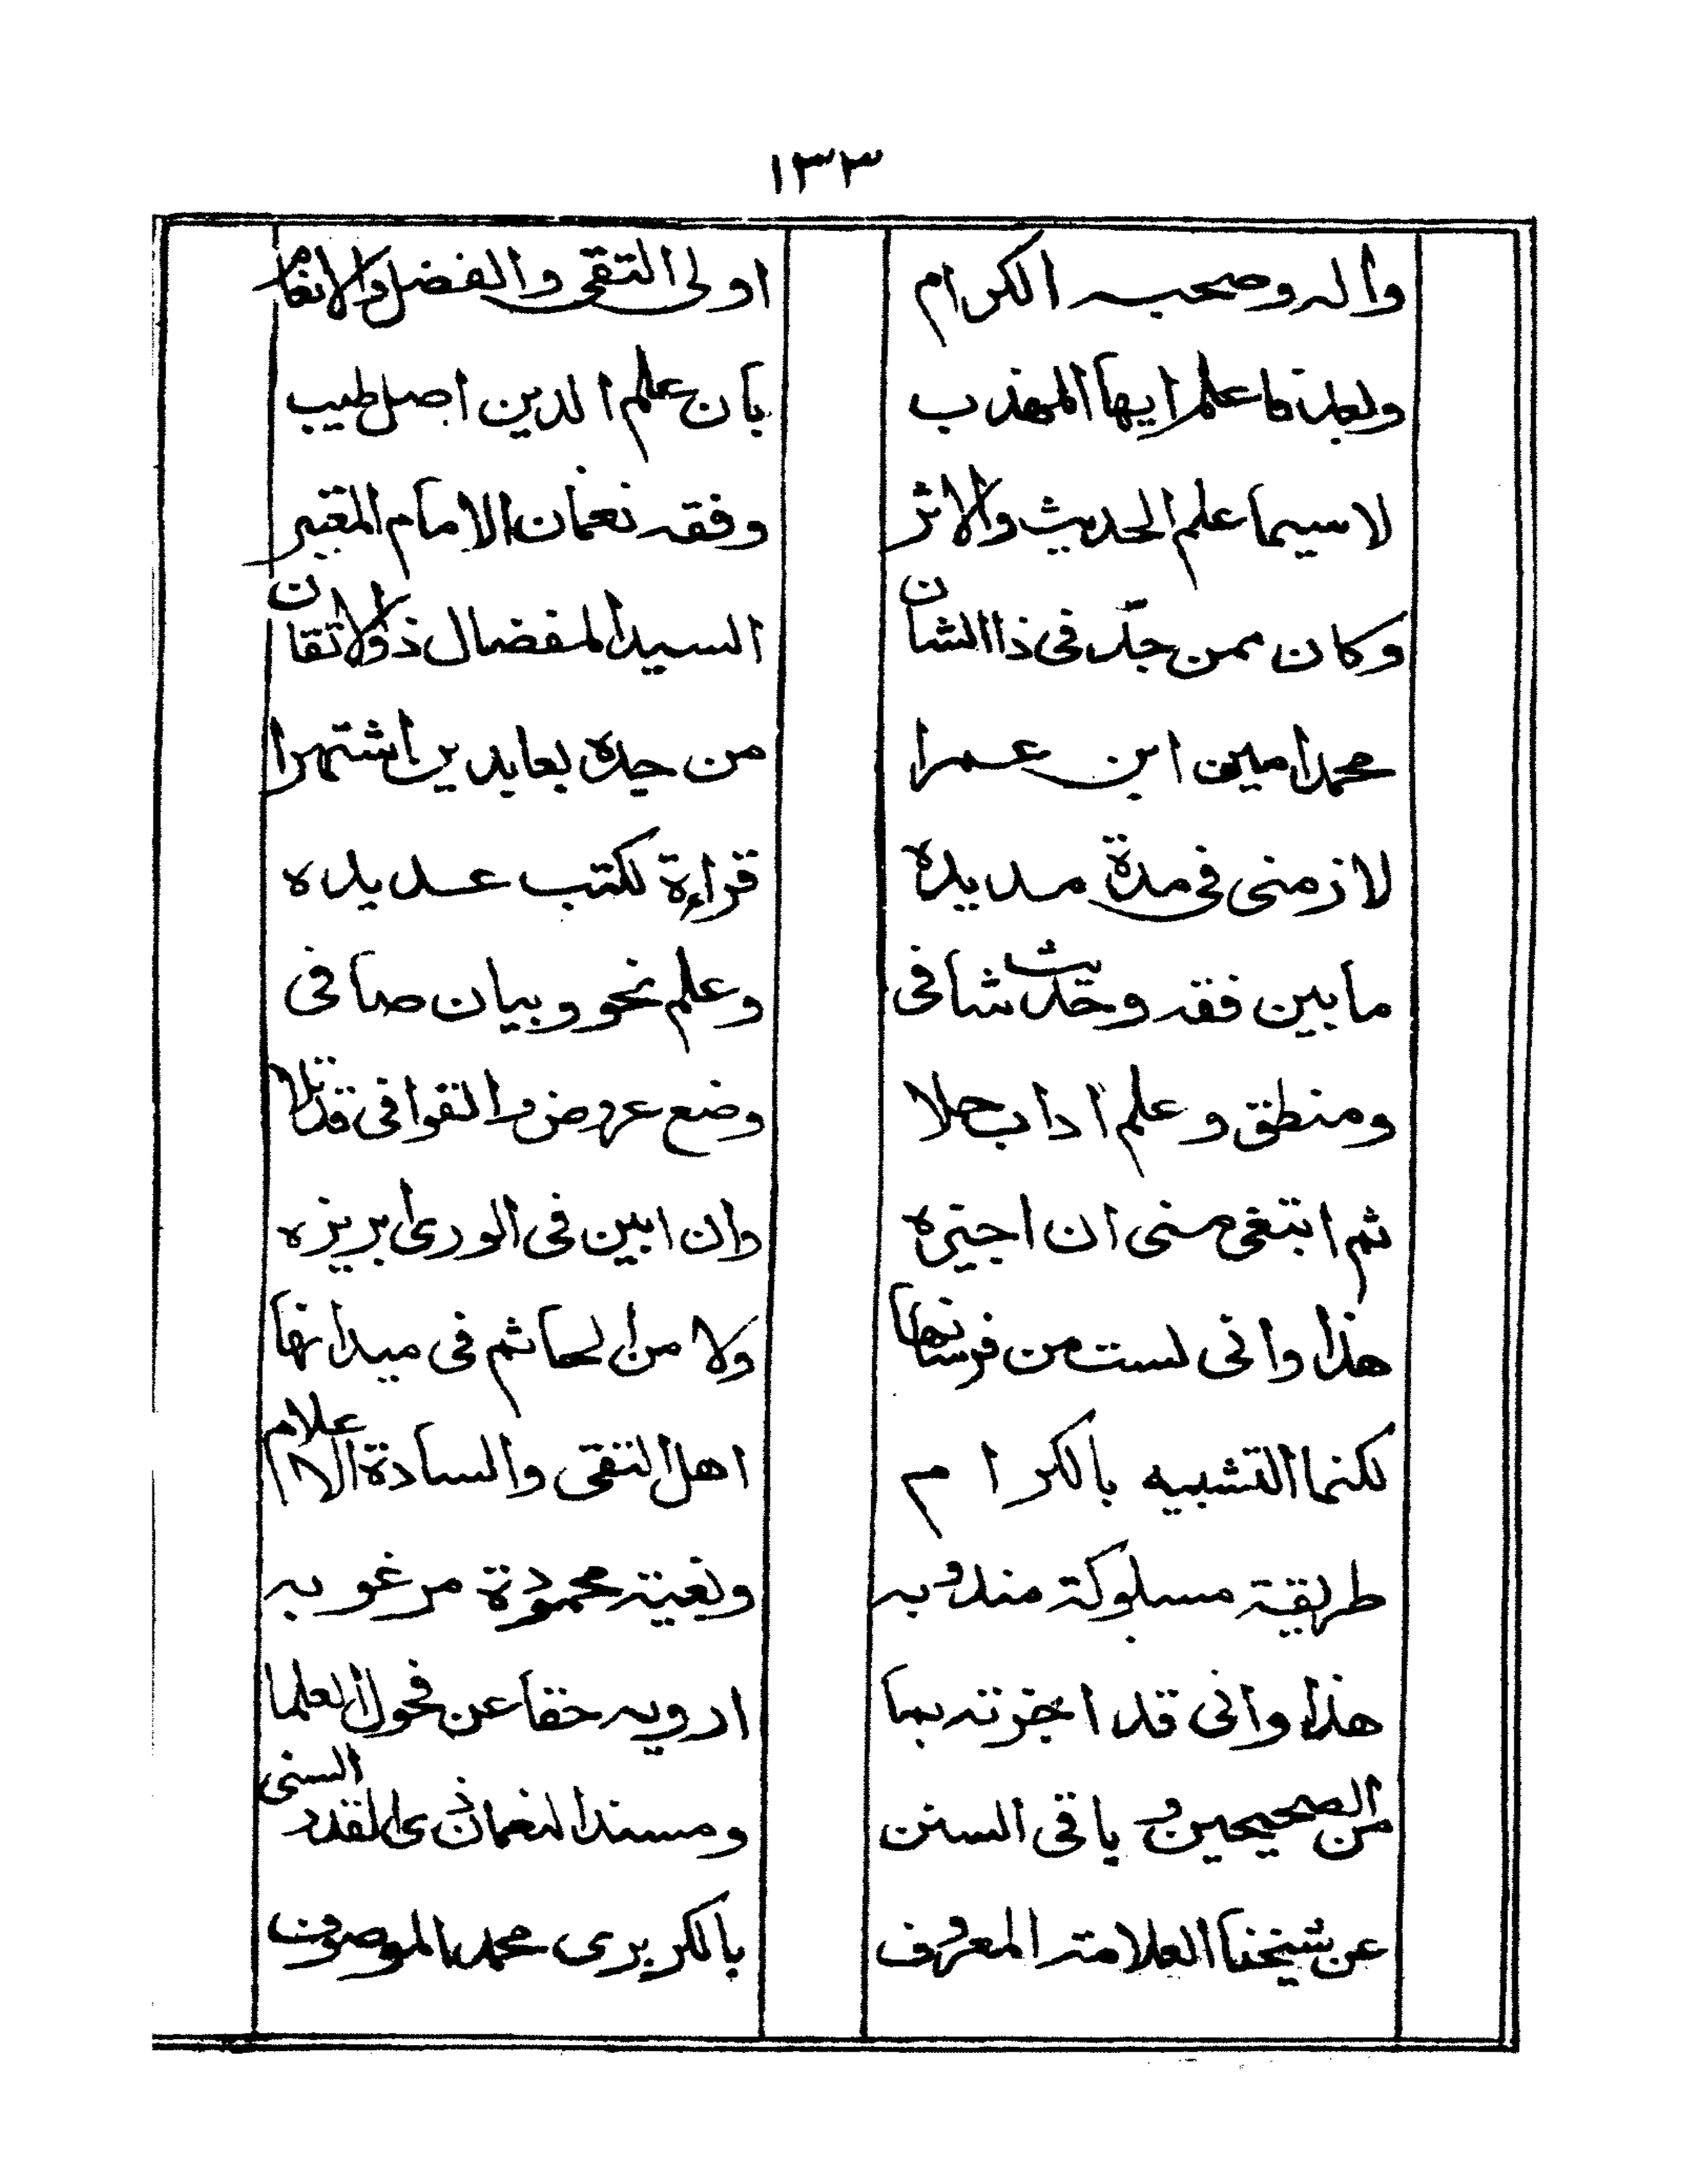 ١٣٣
واله وصحبه الكرام اولى التقى والفضل والانعام
وبعد فاعلم ايها المهذب بان علم الدين اصل طيب
لاسيما علم الحديث والاثر وفقه نعمان الامام المعتبر
وكان ممن جدّ فى ذا الشان السيد المفضال ذو الاتقان
محمد امين ابن عمرا من جده بعابدين اشتهرا
لازمنى فى مدة مديده قراءة لكتب عديده
ما بين فقه وحديث شافى وعلم نحو وبيان صافى
ومنطق وعلم اداب حلا وضع عروض والقوافى قد تلا
ثم ابتغى منى ان اجيزه وان ابين فى الورى ابريزه
هذا وانى لست من فرسانها ولا من لحا ثم فى ميدانها
لكنما التشبيه بالكرام اهل التقى والسادة الاعلام
طريقة مسلوكة مندوبه وبغية محمودة مرغوبه
هذا وانى قد اجزته بما ارويه حقا عن فحول العلما
من الصحيحين و باقى السنن ومسند النعمان ذى القدر السنى
عن شيخنا العلامة المعروف بالكزبرى محمد الموصوف